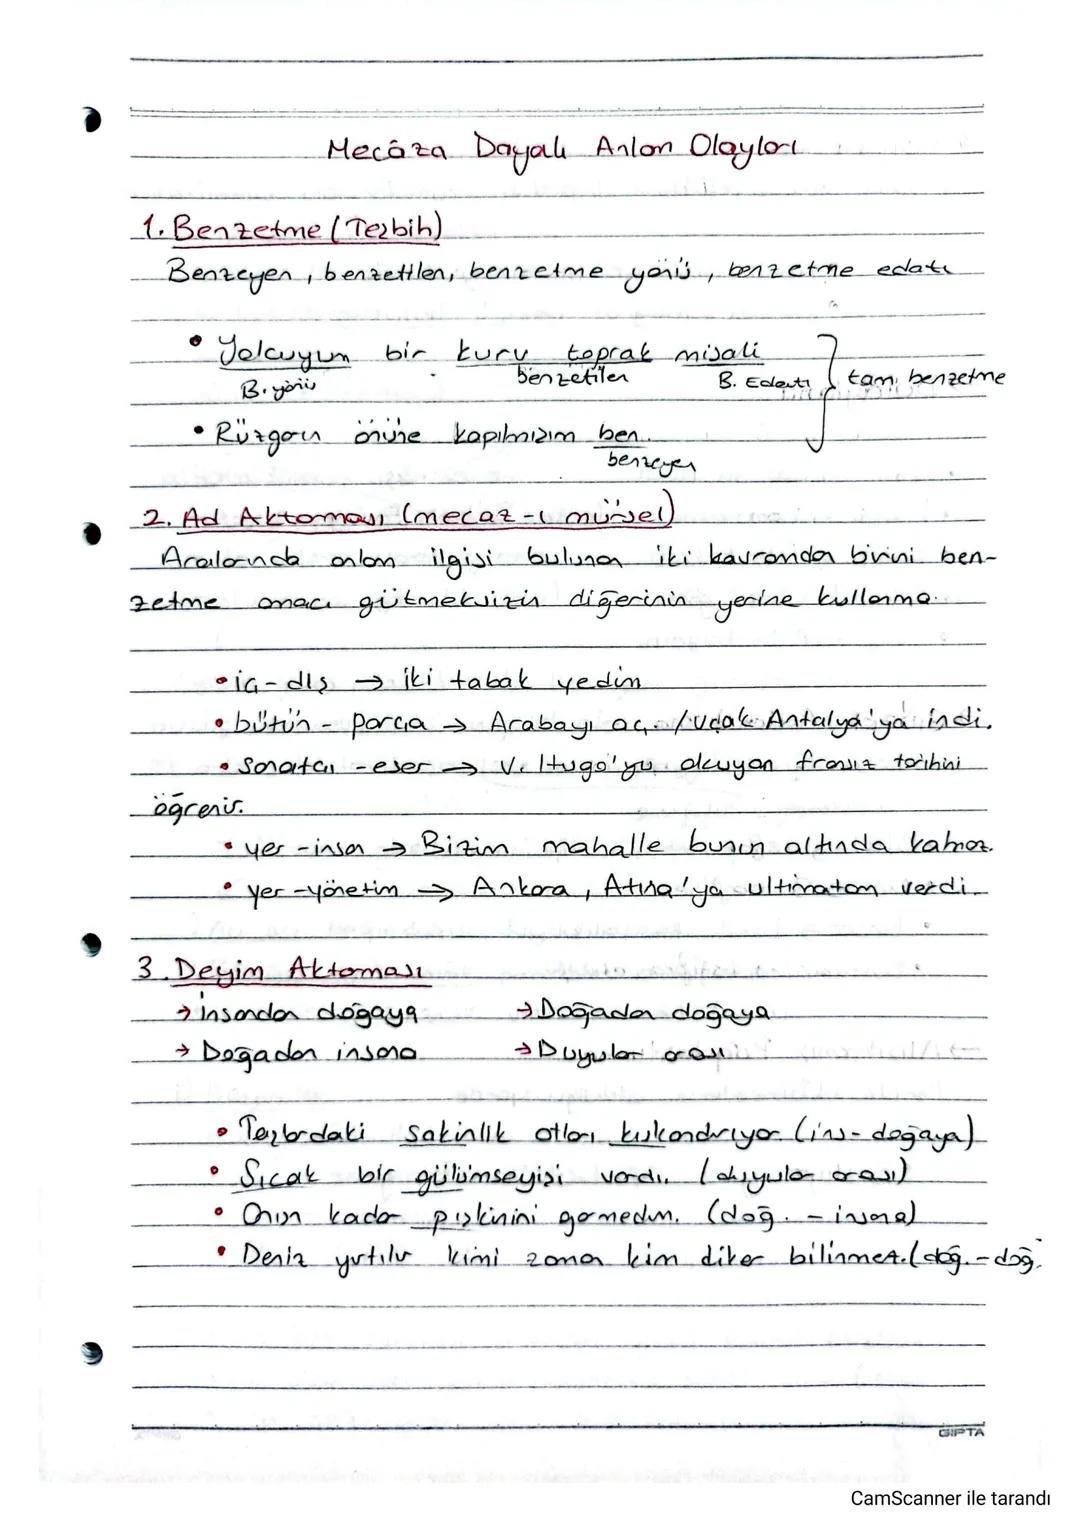 Mecâza Dayalı Anlam Olayları
1. Benzetme (Teşbih)
Benzeyen, benzetilen, benzetme yönü, benzetme edatı
• Yolcuyum bir kuru toprak misali
B. yönü benzetilen B. Edatı tam benzetme
• Rüzgarın önüne kapılmışım ben
benzeyen
2. Ad Aktarması (mecaz-ı mürsel)
Aralarında anlam ilgisi bulunan iki kavramdan birini ben-
zetme amacı gütmeksizin diğerinin yerine kullanma.
• iç-dış → iki tabak yedim
• bütün - parça → Arabayı aç. / Uçak Antalya'ya indi.
• Sanatçı - eser → V. Hugo'yu okuyan fransız tarihini
öğrenir.
• yer - insan → Bizim mahalle bunın altında kalmaz.
• yer - yönetim → Ankara, Atina'ya ultimatom verdi.
3. Deyim Aktarması
→ insandan doğaya → Doğadan doğaya
→ Doğadan insana → Duyular arası
• Tezlardaki sakinlik otları kıskandırıyor (ins - doğaya)
• Sıcak bir gülümseyişi vardı. (duyular arası)
• Onun kadar pişkinini görmedim. (doğ. - insana)
• Deniz yırtılır kimi zaman kim diker bilinmez. (doğ. - doğ.
GIPTA
CamScanner ile tarandı